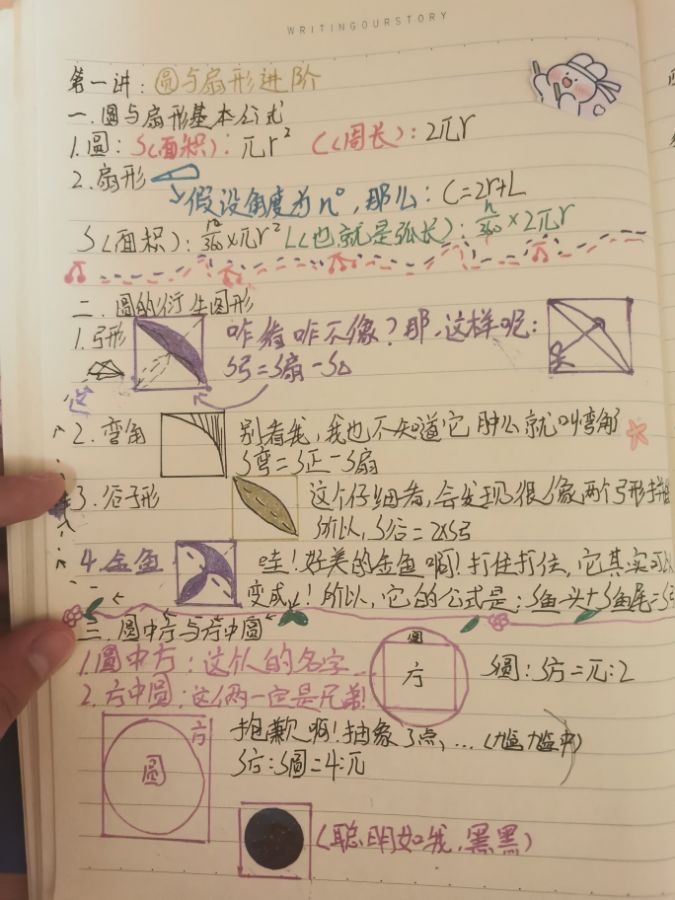 WRITINGOURSTORY
第一讲：圆与扇形进阶
一.圆与扇形基本公式
1.圆：S(面积)：πr² C(周长)：2πr
2.扇形
假设角度为n°，那么：C=2r+L
S(面积)：n/360×πr² L(也就是弧长)：n/360×2πr
二.圆的衍生图形
1.弓形 咋看咋不像？那，这样呢：
S弓=S扇-S△
2.弯角 别看我，我也不知道它肿么就叫弯角
S弯=S正-S扇
3.谷子形 这个仔细看，会发现很像两个弓形拼
所以，S谷=2×S弓
4.金鱼 哇！好美的金鱼啊！打住打住，它其实可以
变成 ！所以，它的公式是：S鱼头+S鱼尾=S弓
三.圆中方与方中圆
1.圆中方：这个人的名字 圆 方 S圆：S方=π：2
2.方中圆：这俩一定是兄弟！
方 圆 抱歉啊！抽象了点，...（尴尬尴中）
S方：S圆=4：π
（聪明如我，黑黑）